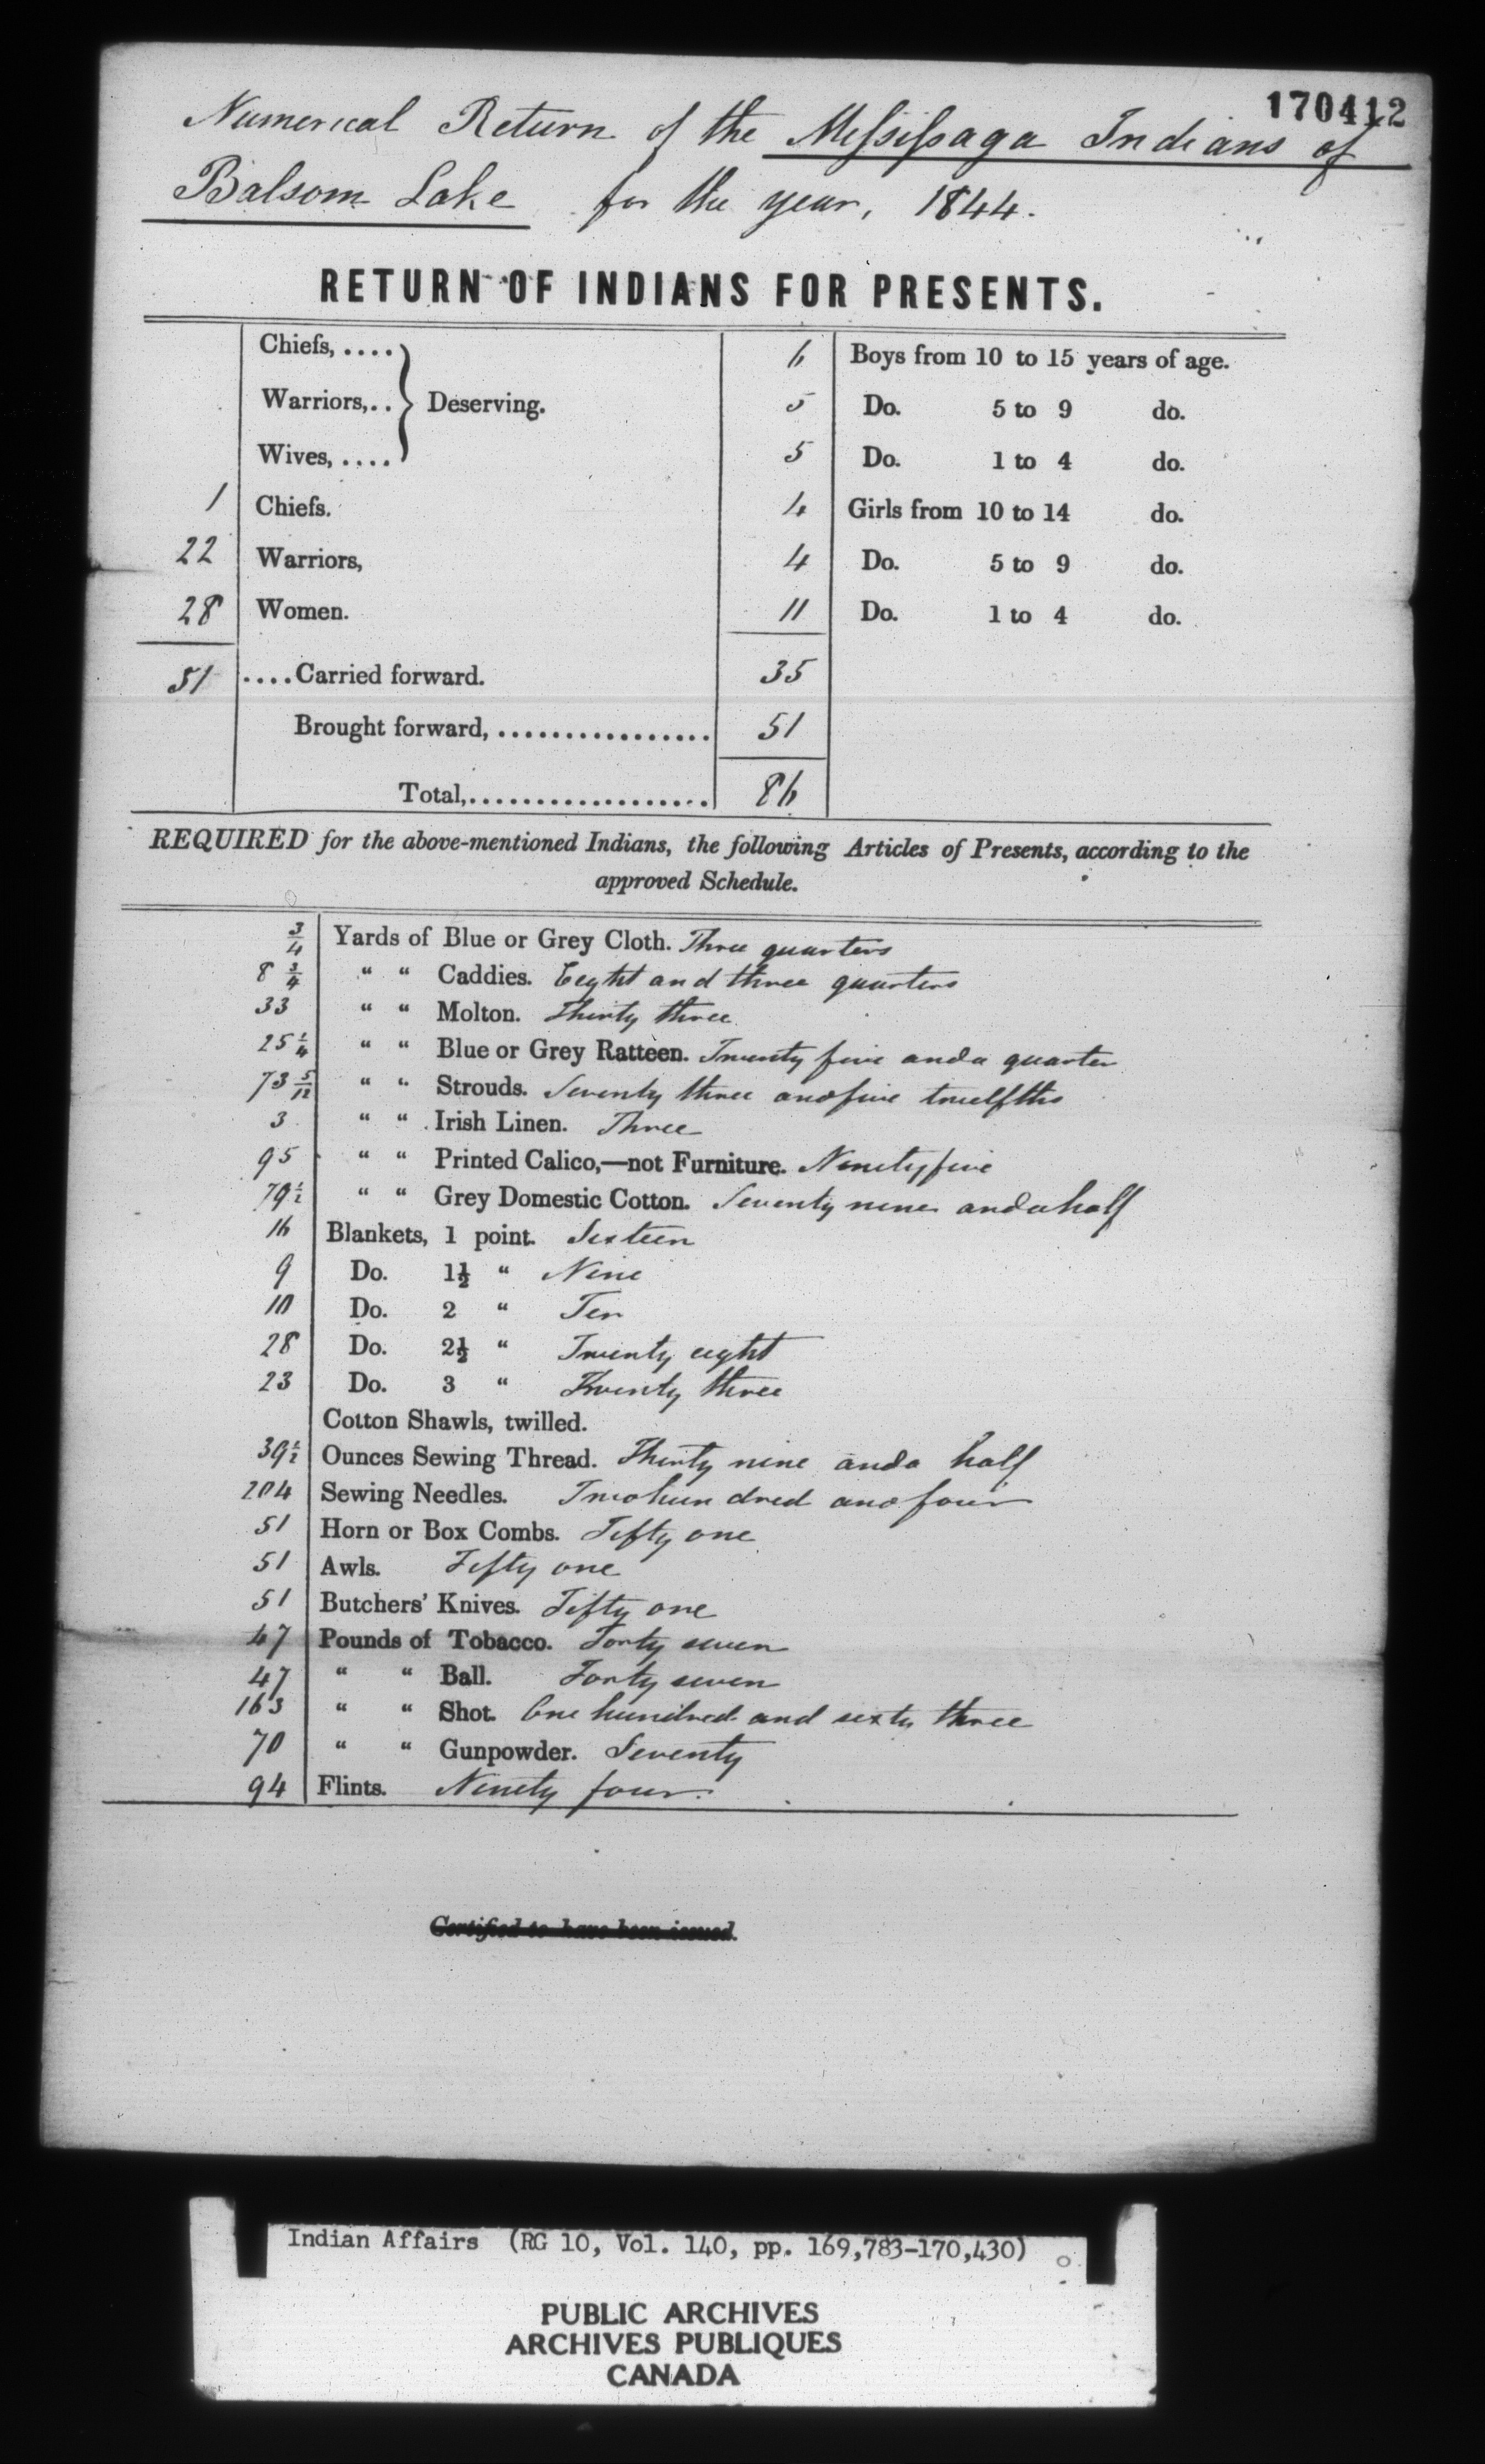 170412
Numerical Return of the Messissaga Indians of
Balsom Lake for the year, 1844.
RETURN OF INDIANS FOR PRESENTS.
Chiefs, .... } Deserving.
Warriors,..
Wives, ....
1 Chiefs.
22 Warriors,
28 Women.
51 ....Carried forward.
6 Boys from 10 to 15 years of age.
5 Do. 5 to 9 do.
5 Do. 1 to 4 do.
4 Girls from 10 to 14 do.
4 Do. 5 to 9 do.
11 Do. 1 to 4 do.
35
Brought forward, ................ 51
Total,................... 86
REQUIRED for the above-mentioned Indians, the following Articles of Presents, according to the
approved Schedule.
3/4 Yards of Blue or Grey Cloth. Three quarters
8 3/4 " " Caddies. Eeght and three quarters
33 " " Molton. Thirty three
25 1/4 " " Blue or Grey Ratteen. Twenty five and a quarter
73 5/12 " " Strouds. Seventy three and five twelfths
3 " " Irish Linen. Three
95 " " Printed Calico,—not Furniture. Ninety five
79 1/2 " " Grey Domestic Cotton. Seventy nine and a half
16 Blankets, 1 point. Sixteen
9 Do. 1½ " Nine
10 Do. 2 " Ten
28 Do. 2½ " Twenty eight
23 Do. 3 " Twenty three
Cotton Shawls, twilled.
39 1/2 Ounces Sewing Thread. Thirty nine and a half
204 Sewing Needles. Two hundred and four
51 Horn or Box Combs. Fifty one
51 Awls. Fifty one
51 Butchers' Knives. Fifty one
47 Pounds of Tobacco. Forty seven
47 " " Ball. Forty seven
163 " " Shot. One hundred and sixty three
70 " " Gunpowder. Seventy
94 Flints. Ninety four.
Certified to have been issued.
Indian Affairs (RG 10, Vol. 140, pp. 169,783-170,430)
PUBLIC ARCHIVES
ARCHIVES PUBLIQUES
CANADA